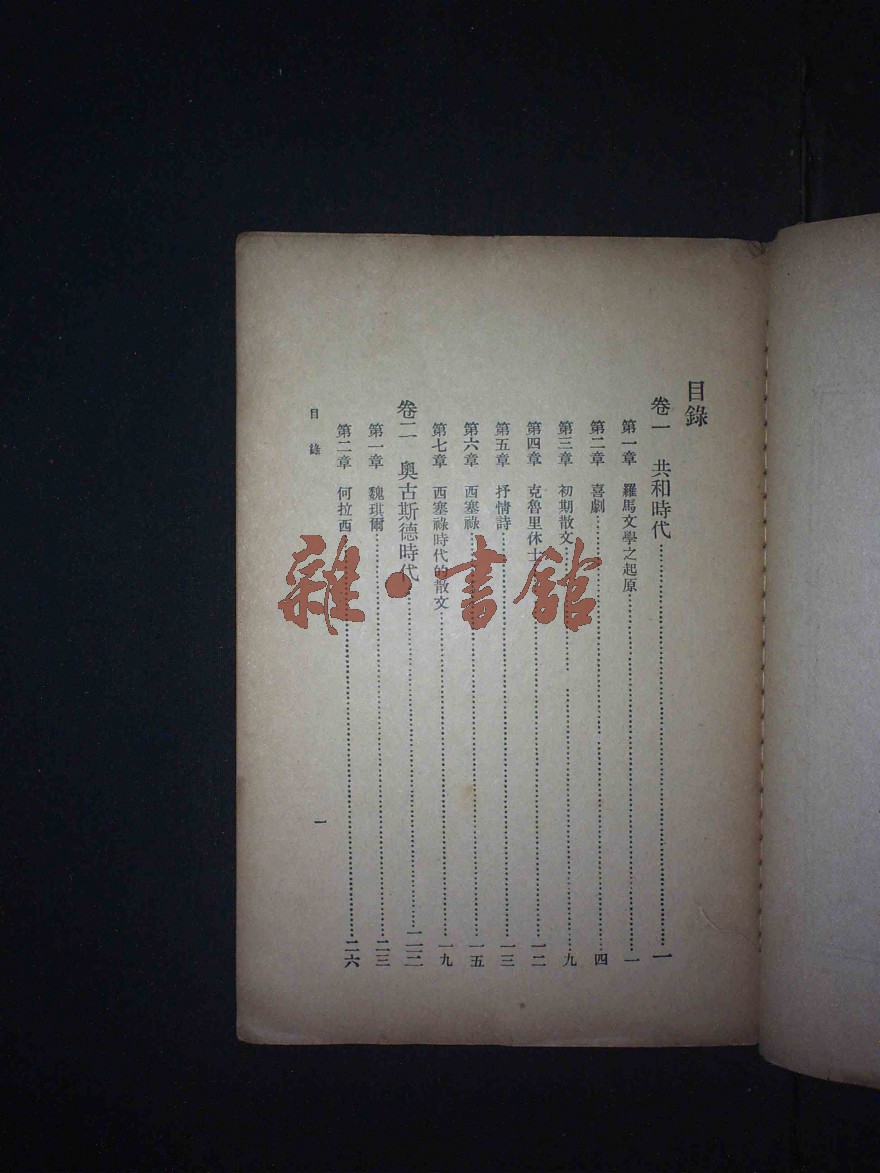 目錄
卷一 共和時代……一
第一章 羅馬文學之起原……一
第二章 喜劇……四
第三章 初期散文……九
第四章 克魯里休士……一二
第五章 抒情詩……一三
第六章 西塞祿……一五
第七章 西塞祿時代的散文……一九
卷二 奧古斯德時代……二二
第一章 魏琪爾……二三
第二章 何拉西……二六
目錄
一
雜·書館